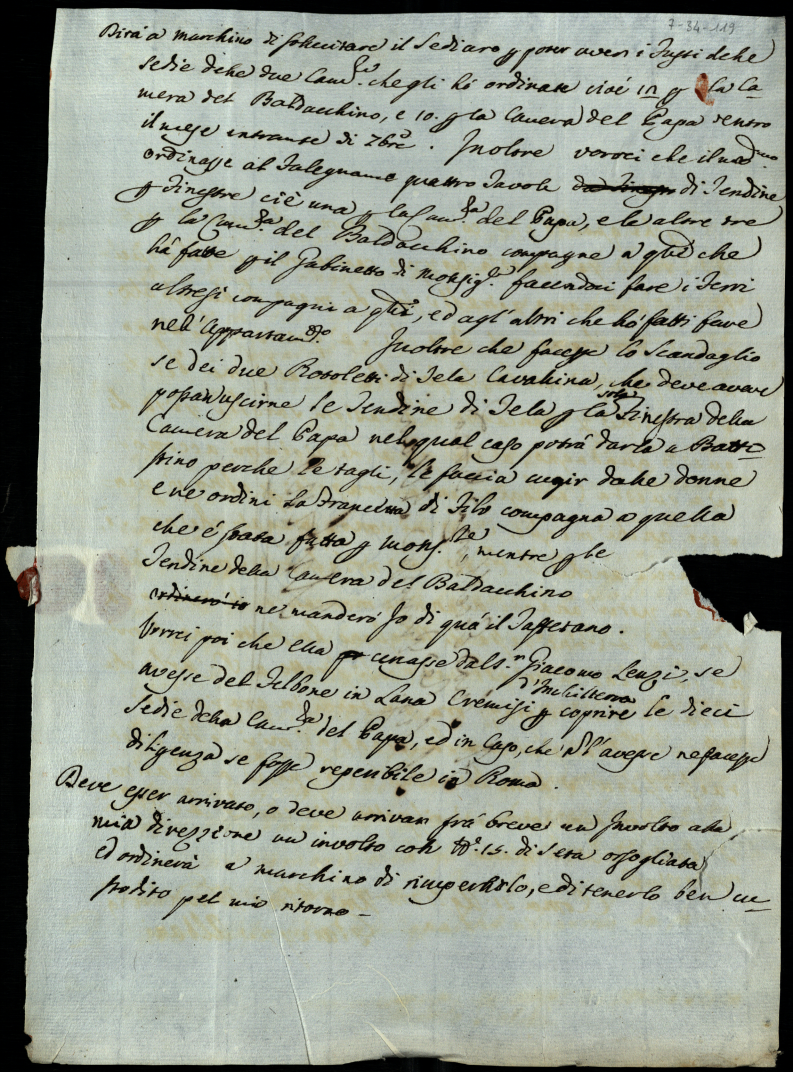 7-34-119
Dirà a Marchino di sollecitare il Sediaro p poter avere i Fusti delle
sedie delle due Cam.re che gli hò ordinate cioè in p la Ca=
mera del Baldacchino, e 10. p la Camera del Papa dentro
il mese entrante di 7bre. Inoltre vorrei che il mad.mo
ordinasse al Falegname quattro Tavole di Tendine
p Finestre cioè una p la Cam.ra del Papa, e le altre tre
p la Cam.ra del Baldacchino compagne a qlle che
hà fatte p il Gabinetto di Monsig.re facendoci fare i Ferri
altresì compagni a qlli, ed agl'altri che hò fatti fare
nell'Appartam.to Inoltre che facesse lo Scandaglio
se dei due Rotoletti di Tela Cavallina, che deve avere
possan uscirne le Tendine di Tela p la sola Finestra della
Camera del Papa nel qual caso potrà darla a Batt=
stino perche le tagli, le faccia cucir dalle donne
e ne ordini la Francietta di Filo compagna a quella
che è stata fatta p Mons.re, mentre p le
Tendine della Camera del Baldacchino
ordinerò io ne manderò Io di quà il Taffetano.
Vorrei poi che Ella cercasse dal S.r Giacomo Lenzi, se
avesse del Felbone in Lana Cremisi d'Inghilterra p coprire le dieci
Sedie della Cam.ra del Papa, ed in caso, che nol'avesse ne facesse
diligenza se fosse reperibile in Roma.
Deve esser arrivato, o deve arrivare frà breve un Involto alla
mia direzzione un involto con lb. 15. di seta orsogliata
ed ordinerà a Marchino di riceverlo, e di tenerlo ben cu=
stodito pel mio ritorno -